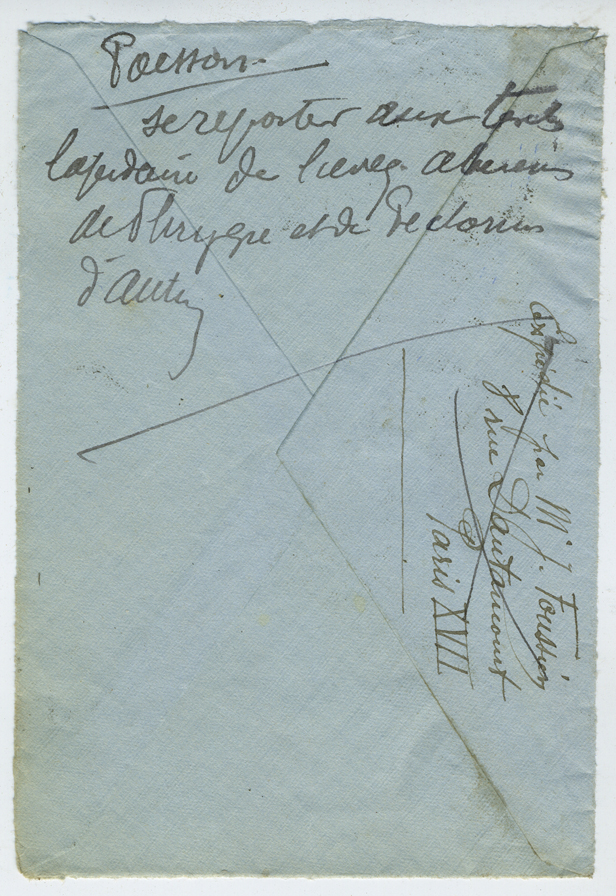 Poisson.
se reporter aux textes
lapidaire de l'eveq abercius
de Phrygie et de Pectorius
d'Autun
Expédié par Mr J. Toussin
8 rue Dautancourt
Paris XVII